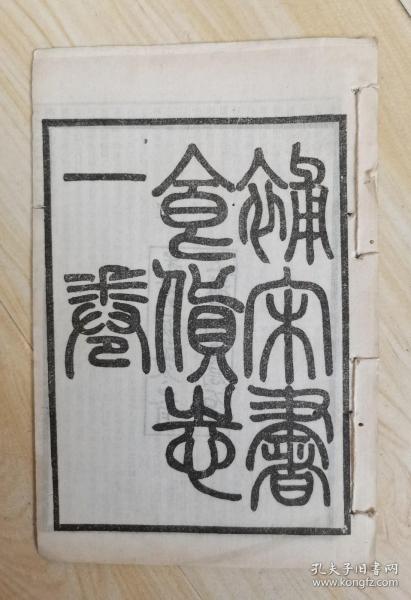 補宋書
食貨志
一卷
孔夫子旧书网
www.kongfz.com